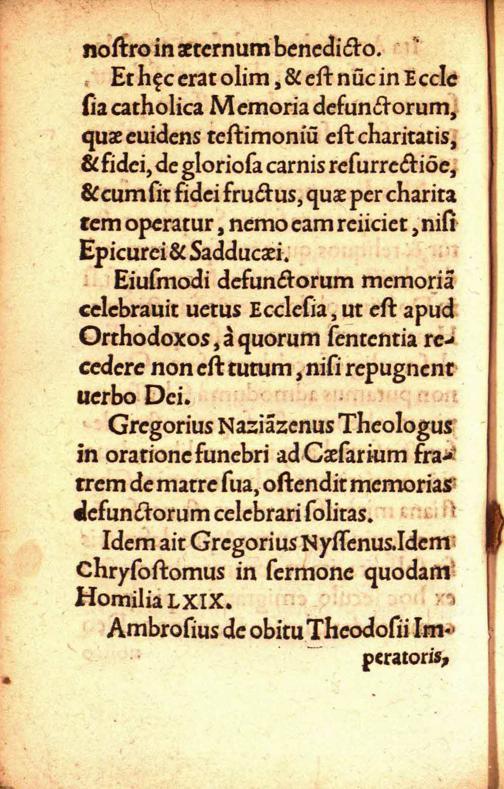 noſtro in æternum benedicto.
Et hęc erat olim, & eſt nūc in Eccle
ſia catholica Memoria defunctorum,
quæ euidens teſtimoniū eſt charitatis,
& fidei, de glorioſa carnis reſurrectiōe,
& cum ſit fidei fructus, quæ per charita
tem operatur, nemo eam reiiciet, niſi
Epicurei & Sadducæi.
Eiuſmodi defunctorum memoriā
celebrauit uetus Eccleſia, ut eſt apud
Orthodoxos, à quorum ſententia re-
cedere non eſt tutum, niſi repugnent
uerbo Dei.
Gregorius Naziāzenus Theologus
in oratione funebri ad Cæſarium fra-
trem de matre ſua, oſtendit memorias
defunctorum celebrari ſolitas.
Idem ait Gregorius Nyſſenus. Idem
Chryſoſtomus in ſermone quodam
Homilia LXIX.
Ambroſius de obitu Theodoſii Im-
peratoris,